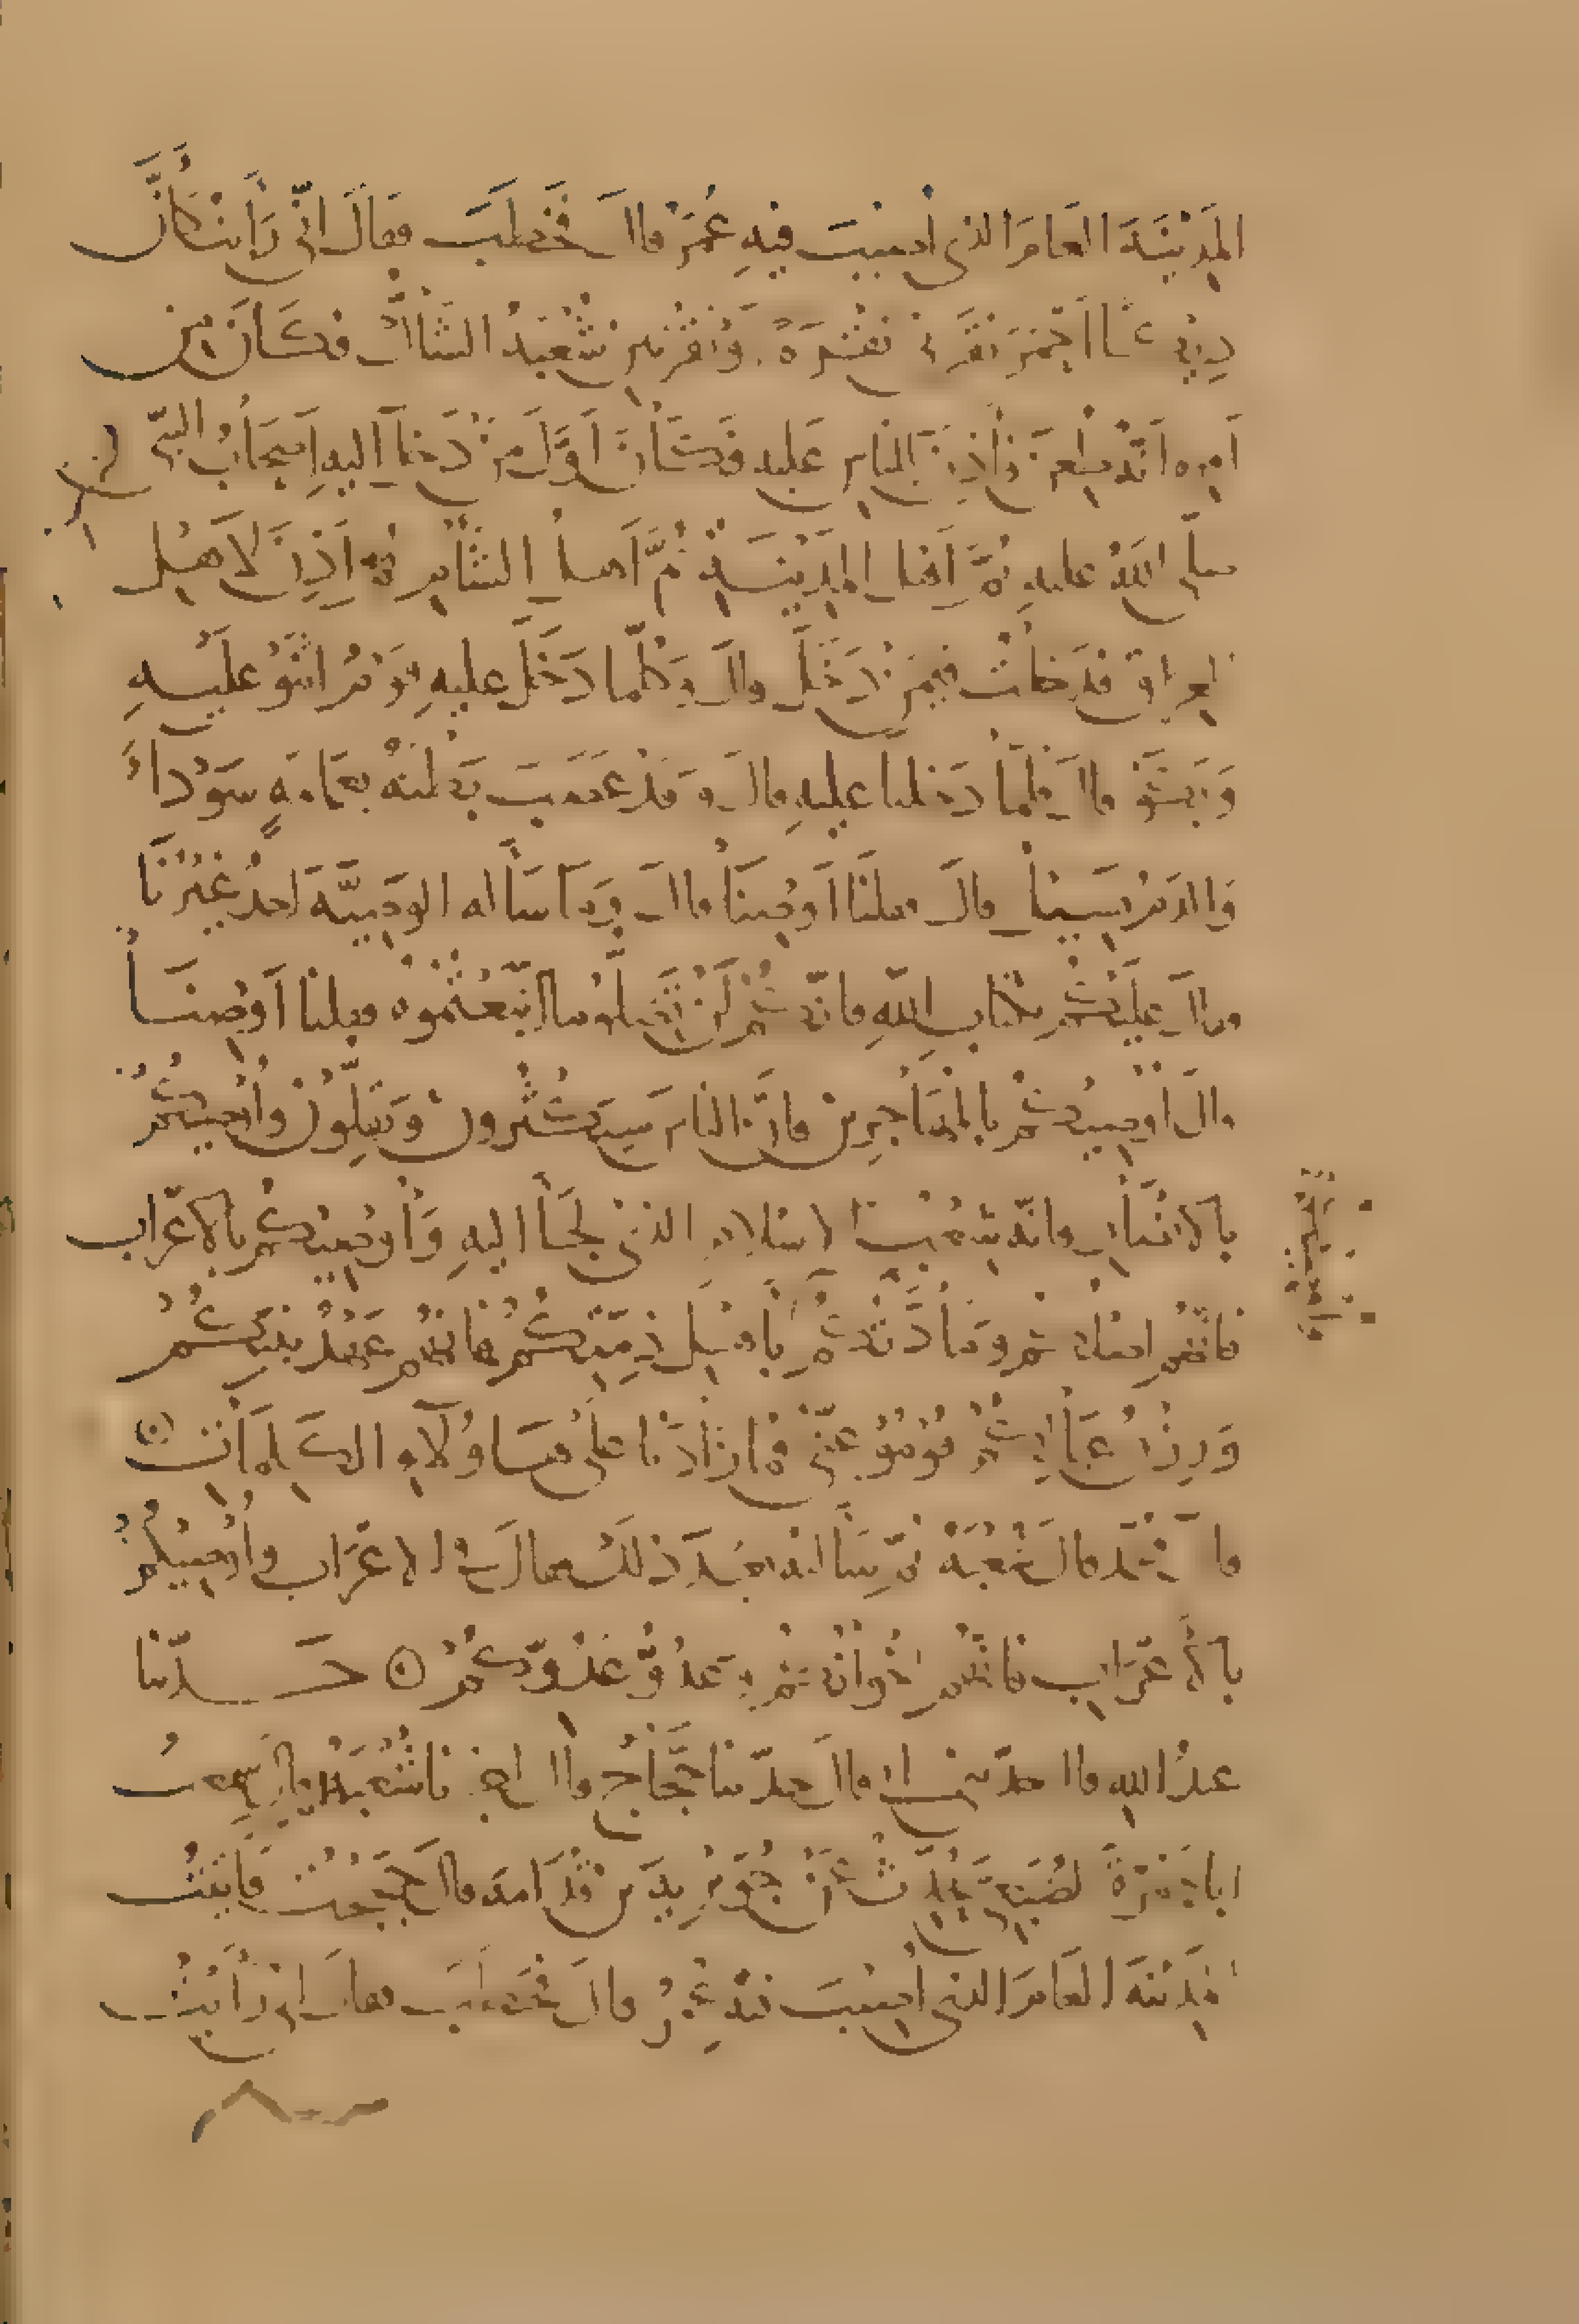 المَدِيْنَةَ العامَ الذى أُصِيْبَ فيهِ عُمَرُ قال فَخَطَبَ فقالَ انّى رَأيت كأنَّ
دِيْكًا احْمَرَ نَقَرَنِى نَقْرَةً اَوْ نَقْرَتَيْنِ شُعْبَةُ الشَّاكُّ فَكَانَ مِن
اَمرِه اَنَّهُ طُعِنَ فَأُذِنَ لِلناسِ عَليه فَكَانَ اَوَّلَ مَنْ دَخَلَ اليهِ اَصحَابُ النبى
صلى اللهُ عليهِ ثُمَّ اَهل المَدِيْنَةِ ثُمَّ اَهلُ الشَّامِ ثُمَّ اُذِنَ لاَهْلِ
العِراق فَدَخلتُ فيمَنْ دَخَلَ قال وَكُلّما دَخَلَ عليهِ قَوْمٌ اثنَوْ عَلَيْهِ
وَبَكَوْ قال فَلَمَّا دَخلنا عليهِ قال وَقَدْ عَصَبَ بَطْنَهُ بعمامَةٍ سَوْدَاءَ
وَالدَمُ يَسِيْلُ قال فقلنَا اَوْصِنَا قال وَمَا سَأله الوصيَّةَ احدٌ غيرُنَا
فقال عليكُم بكتابِ اللّهِ فانّكُمْ لَنْ تَضِلّوُ ما اتّبَعْتُمُوهُ فقلنا اَوْصِنَا
قالَ اُوْصِيكُمْ بالمُهَاجِرِينَ فانَّ الناسَ سَيَكْثُرونَ وَيَقِلّونَ وأُوصِيكُمْ
بالانْصَارِ فانّهم شِعْبُ الاسْلامِ الذى لَجَأَ اليهِ وَأُوْصِيْكُمْ بالاعْرَاب
فانّهم اصْلُكُم وَمَادَّتُكُمْ وأُوصِيْكُمْ باَهْلِ ذِمَّتِكُمْ فانّهم عَهْدُ نبيّكُمْ
وَرِزْقُ عِيَالِكُمْ قُوْمُوْ عَنّى فمَا زَادَنَا على هَؤُلاَءِ الكَلِمَاتِ
قال مُحَمَّد قالَ شُعْبَةُ ثمّ سَألتُهُ بَعْدَ ذلكَ فقالَ فى الاعْرَابِ وأُوصِيْكُمْ
بالأعْرَابِ فانّهُم اخْوَانُكُمْ وعَدُوُّ عَدُوّكُمْ حَدّثنا
عبدُ الله قال حدّثنى ابى قالَ حدّثنا حَجَّاجٌ قال اخبرنا شُعْبَةُ قال سَمِعتُ
ابا جَمْرَةَ الضُبَعىَّ يُحَدِّثُ عَنْ جُوَيْرِيَةَ بن قُدَامَة قال حَجَجْتُ فَاَتَيْتُ
المَدِيْنَةَ العَامَ الذى أُصِيْبَ فيه عُمَرُ قالَ فَخَطَبَ فقالَ انى رَأيْتُ